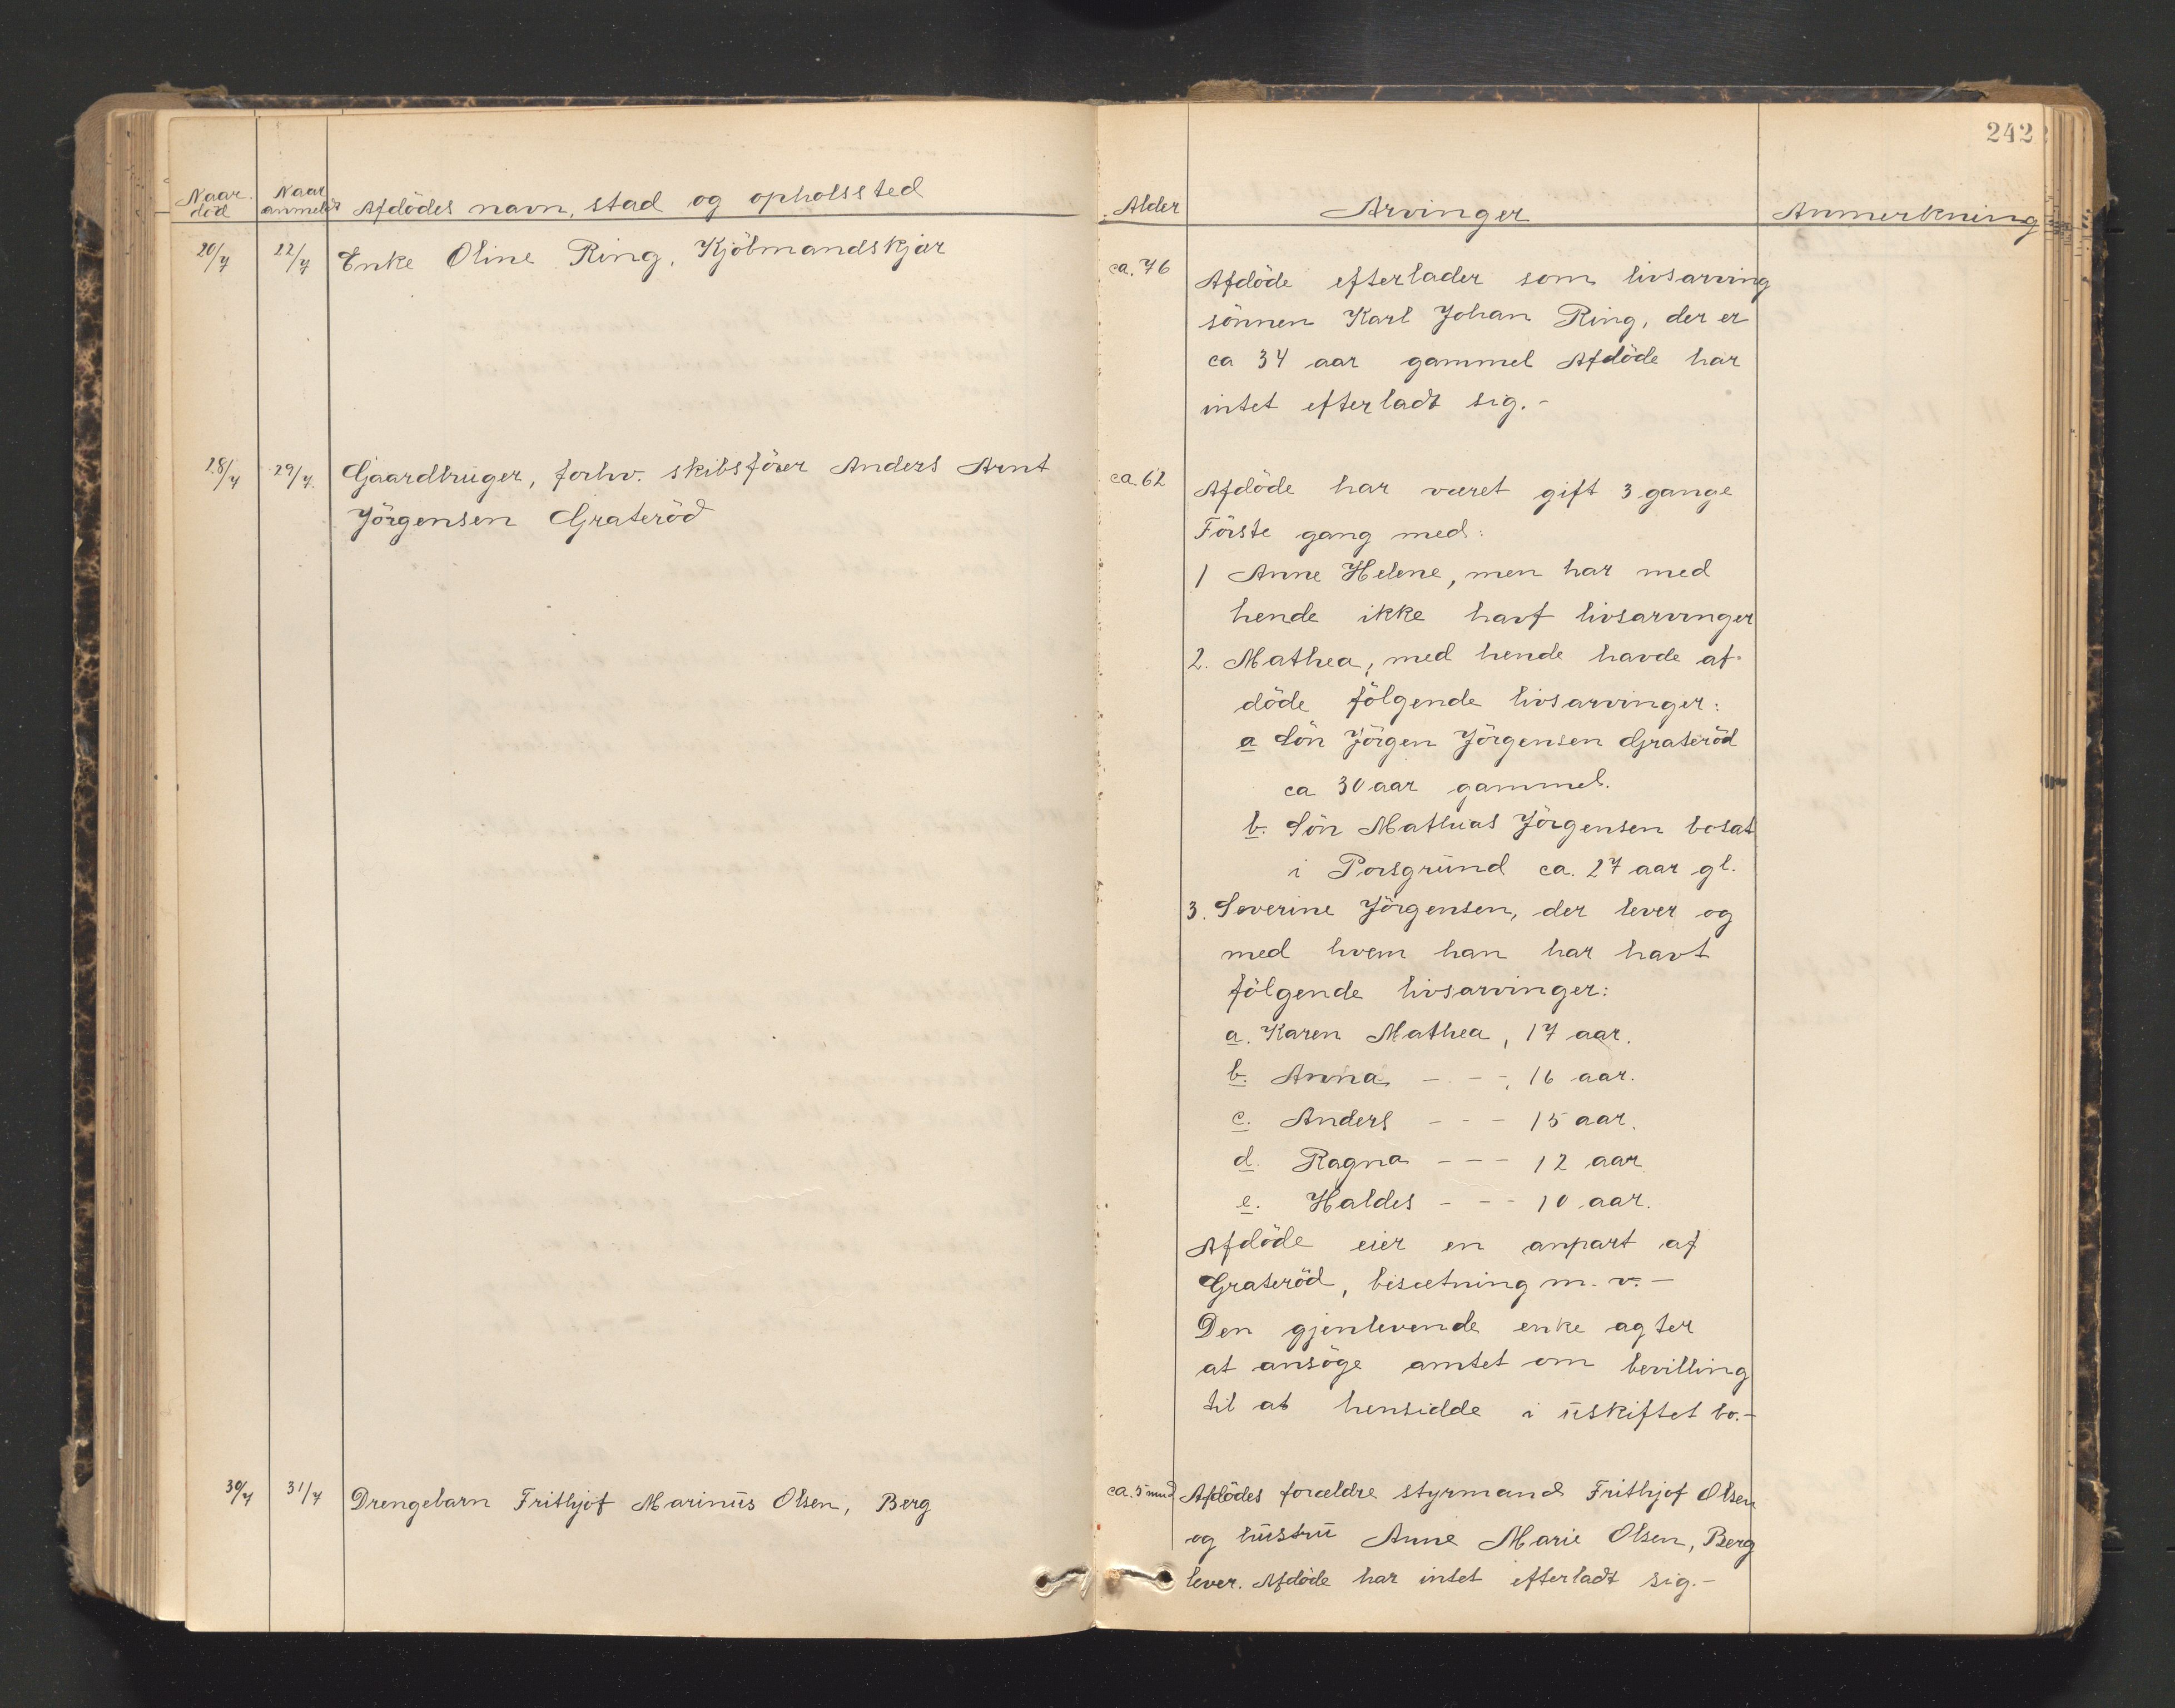 242
Naar død
Naar anmeldt
Afdödes navn, stad og opholssted
Alder
Arvinger
Anmerkning
20/7
22/7
Enke Oline Ring, Kjöbmandskjær
ca. 76
Afdöde efterlader som livsarving
sönnen Karl Johan Ring, der er
ca 34 aar gammel Afdöde har
intet efterladt sig.-
28/7
29/7.
Gaardbruger, forhv. skibsförer Anders Arnt
Jörgensen Grateröd
ca. 62
Afdöde har været gift 3 gange
Förste gang med:
1 Anne Helene, men har med
hende ikke havt livsarvinger
2. Mathea, med hende havde af-
döde fölgende livsarvinger:
a Sön Jörgen Jörgensen Grateröd
ca 30 aar gammel.
b. Sön Mathias Jörgensen bosat
i Porsgrund ca. 27 aar gl.
3. Severine Jörgensen, der lever og
med hvem han har havt
fölgende livsarvinger:
a. Karen Mathea, 17 aar.
b. Anna - - -, 16 aar.
c. Anders - - - 15 aar.
d. Ragna - - - 12 aar
e. Haldis - - - 10 aar.
Afdöde eier en anpart af
Grateröd, besætning m. v.-
Den gjenlevende enke agter
at ansöge amtet om bevilling
til at hensidde i uskiftet bo.-
30/7
31/7
Drengebarn Frithjof Marinus Olsen, Berg
ca. 5 mnd
Afdödes forældre styrmand Frithjof Olsen
og hustru Anne Marie Olsen, Berg
lever. Afdöde har intet efterladt sig.-